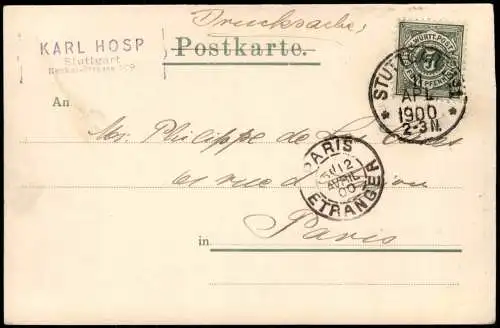 Drucksache
KARL HOSP
Stuttgart
Postkarte.
WÜRTT. POST
5
FÜNF PFENNIG
STUTTGART
APL
1900
2-3 N.
An
Mr. Philippe de Las
PARIS
12
AVRIL
00
ETRANGER
61 rue d'
in Paris